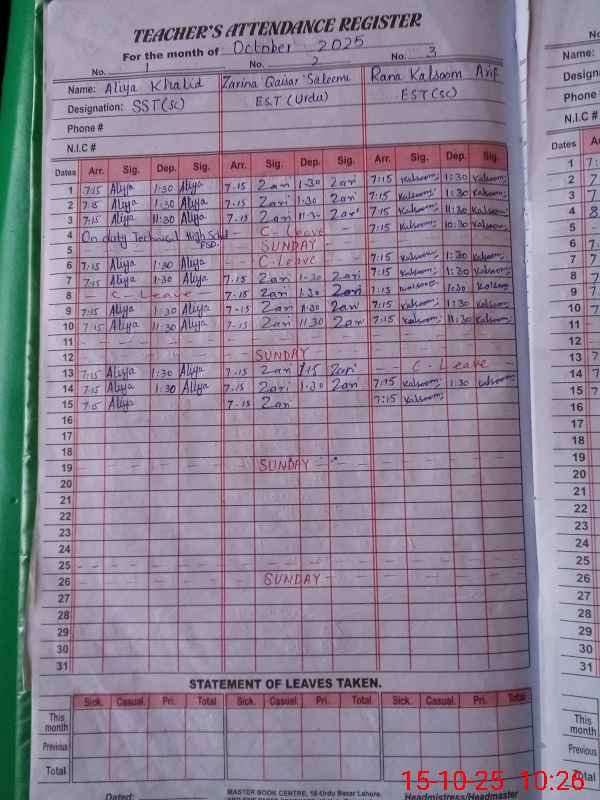 TEACHER'S ATTENDANCE REGISTER
For the month of October 2025
No. 1 No. 2 No. 3
Name: Aliya Khalid Zarina Qaisar Saleemi Rana Kalsoom Arif
Designation: SST(SC) EST(Urdu) EST(SC)
Phone #
N.I.C #
Dates Arr. Sig. Dep. Sig. Arr. Sig. Dep. Sig. Arr. Sig. Dep. Sig.
1 7:15 Aliya 1:30 Aliya 7-15 Zari 1-30 Zari 7:15 Kalsoom 1:30 Kalsoom
2 7:15 Aliya 1:30 Aliya 7-15 Zari 1:30 Zari 7:15 Kalsoom 1:30 Kalsoom
3 7:15 Aliya 11:30 Aliya 7-15 Zari 11-30 Zari 7:15 Kalsoom 11:30 Kalsoom
4 On duty Technical High School FSD. - C-Leave - 7:15 Kalsoom 10:30 Kalsoom
5 - SUNDAY -
6 7:15 Aliya 1:30 Aliya - C-Leave - 7:15 Kalsoom 1:30 Kalsoom
7 7:15 Aliya 1:30 Aliya 7-15 Zari 1-30 Zari 7:15 Kalsoom 1:30 Kalsoom
8 - C-Leave - 7-15 Zari 1:30 Zari 7:15 Kalsoom 1:30 Kalsoom
9 7:15 Aliya 1:30 Aliya 7-15 Zari 1:30 Zari 7:15 Kalsoom 1:30 Kalsoom
10 7:15 Aliya 11:30 Aliya 7-15 Zari 11:30 Zari 7:15 Kalsoom 11:30 Kalsoom
11
12 - SUNDAY -
13 7:15 Aliya 1:30 Aliya 7-15 Zari Zari - C-Leave -
14 7:15 Aliya 1:30 Aliya 7-15 Zari 1-30 Zari 7:15 Kalsoom 1:30 Kalsoom
15 7:15 Aliya 7-15 Zari 7:15 Kalsoom
16
17
18
19 - SUNDAY -
20
21
22
23
24
25
26 SUNDAY -
27
28
29
30
31
STATEMENT OF LEAVES TAKEN.
Sick. Casual. Pri. Total Sick. Casual. Pri. Total Sick. Casual. Pri. Total
This month
Previous
Total
Dated: MASTER BOOK CENTRE, 16-Urdu Bazar Lahore. Headmistress/Headmaster
15-10-25 10:26